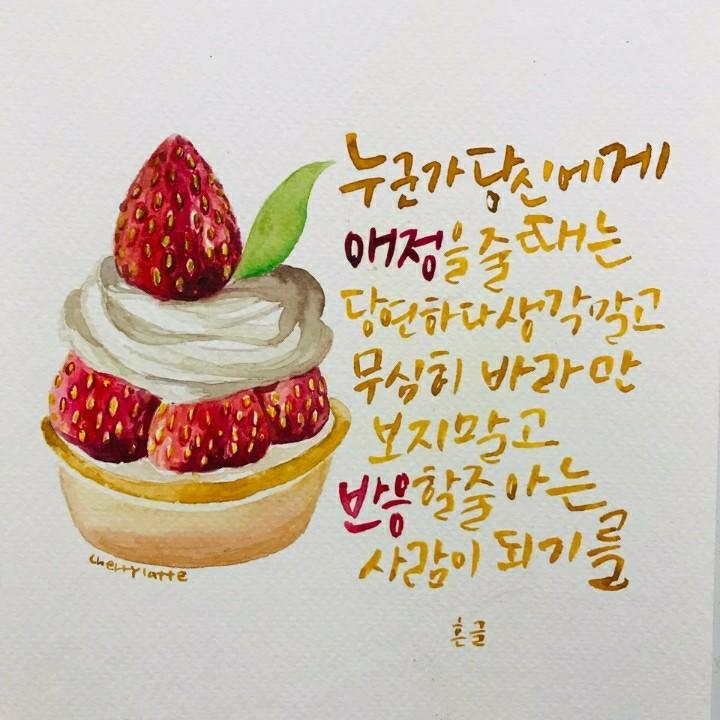 누군가 당신에게
애정을 줄 때는
당연하다 생각말고
무심히 바라만
보지말고
반응할 줄 아는
사람이 되기를
흔글
cherrylatte